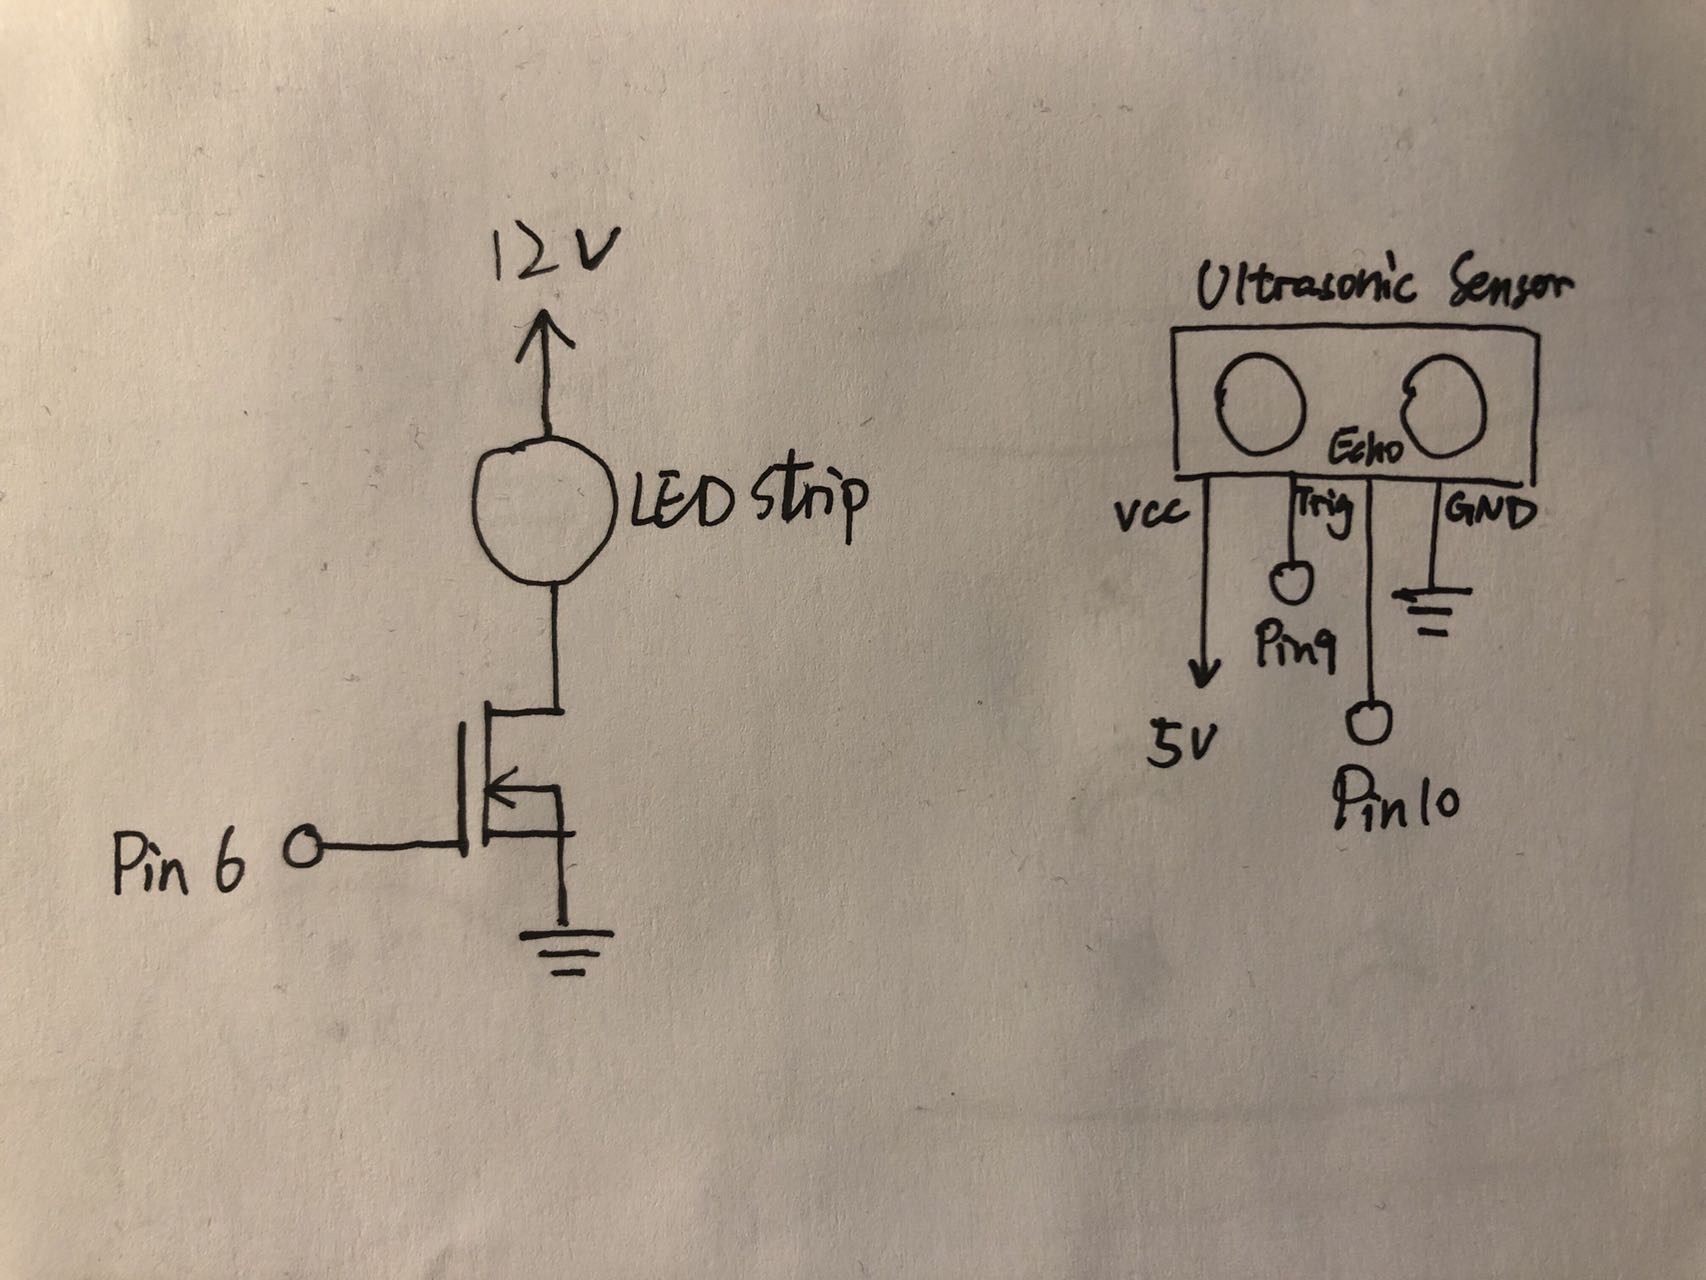 12V
LED Strip
Pin 6
Ultrasonic Sensor
Echo
VCC
Trig
GND
Pin9
5V
Pin10